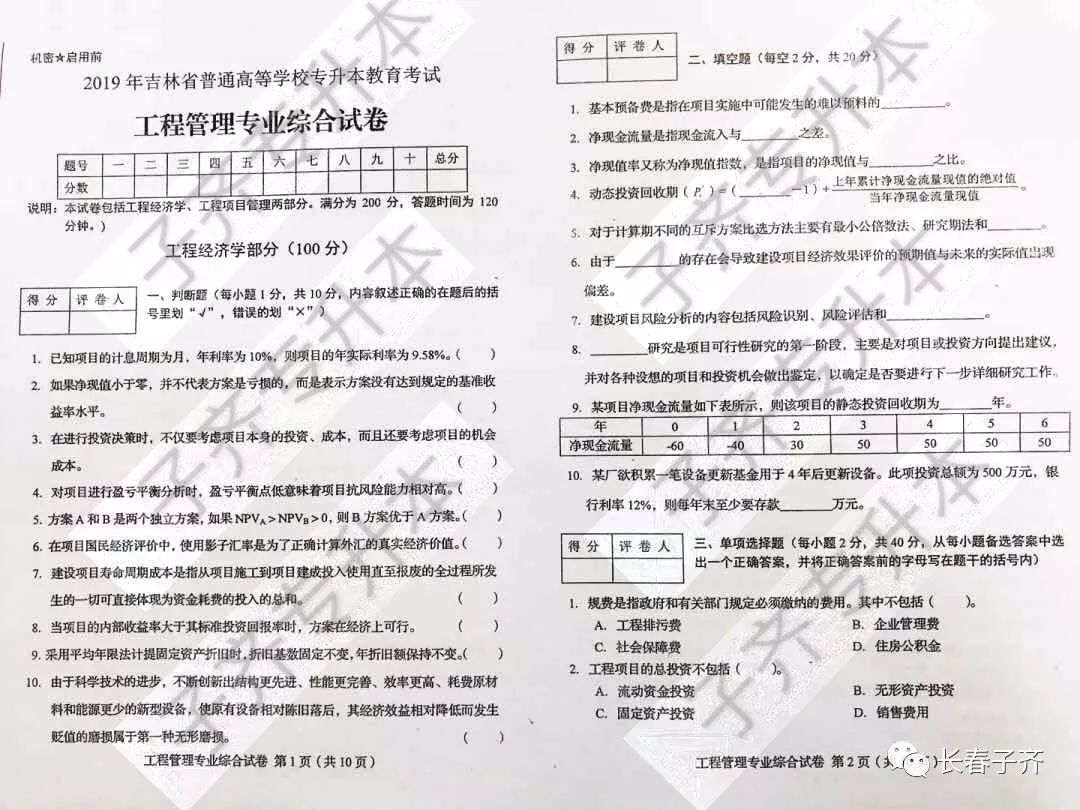 机密☆启用前
2019 年吉林省普通高等学校专升本教育考试
工程管理专业综合试卷
题号 一 二 三 四 五 六 七 八 九 十 总分
分数
说明：本试卷包括工程经济学、工程项目管理两部分。满分为 200 分，答题时间为 120
分钟。）
工程经济学部分（100 分）
得 分 评 卷 人
一、判断题（每小题 1 分，共 10 分，内容叙述正确的在题后的括
号里划“√”，错误的划“×”）
1. 已知项目的计息周期为月，年利率为 10%，则项目的年实际利率为 9.58%。（ ）
2. 如果净现值小于零，并不代表方案是亏损的，而是表示方案没有达到规定的基准收
益率水平。 （ ）
3. 在进行投资决策时，不仅要考虑项目本身的投资、成本，而且还要考虑项目的机会
成本。 （ ）
4. 对项目进行盈亏平衡分析时，盈亏平衡点低意味着项目抗风险能力相对高。（ ）
5. 方案 A 和 B 是两个独立方案，如果 NPV_A＞NPV_B＞0，则 B 方案优于 A 方案。（ ）
6. 在项目国民经济评价中，使用影子汇率是为了正确计算外汇的真实经济价值。（ ）
7. 建设项目寿命周期成本是指从项目施工到项目建成投入使用直至报废的全过程所发
生的一切可直接体现为资金耗费的投入的总和。 （ ）
8. 当项目的内部收益率大于其标准投资回报率时，方案在经济上可行。 （ ）
9. 采用平均年限法计提固定资产折旧时，折旧基数固定不变，年折旧额保持不变。（ ）
10. 由于科学技术的进步，不断创新出结构更先进、性能更完善、效率更高、耗费原材
料和能源更少的新型设备，使原有设备相对陈旧落后，其经济效益相对降低而发生
贬值的磨损属于第一种无形磨损。 （ ）
工程管理专业综合试卷 第 1 页（共 10 页）
得 分 评 卷 人
二、填空题（每空 2 分，共 20 分）
1. 基本预备费是指在项目实施中可能发生的难以预料的__________。
2. 净现金流量是指现金流入与________之差。
3. 净现值率又称为净现值指数，是指项目的净现值与_________之比。
4. 动态投资回收期（P_t'）=（_______—1）+ 上年累计净现金流量现值的绝对值 / 当年净现金流量现值 。
5. 对于计算期不同的互斥方案比选方法主要有最小公倍数法、研究期法和________。
6. 由于_________的存在会导致建设项目经济效果评价的预期值与未来的实际值出现
偏差。
7. 建设项目风险分析的内容包括风险识别、风险评估和______________。
8. ________研究是项目可行性研究的第一阶段，主要是对项目或投资方向提出建议，
并对各种设想的项目和投资机会做出鉴定，以确定是否要进行下一步详细研究工作。
9. 某项目净现金流量如下表所示，则该项目的静态投资回收期为_______年。
年 0 1 2 3 4 5 6
净现金流量 -60 -40 30 50 50 50 50
10. 某厂欲积累一笔设备更新基金用于 4 年后更新设备。此项投资总额为 500 万元，银
行利率 12%，则每年末至少要存款_______万元。
得 分 评 卷 人
三、单项选择题（每小题 2 分，共 40 分，从每小题备选答案中选
出一个正确答案，并将正确答案前的字母写在题干的括号内）
1. 规费是指政府和有关部门规定必须缴纳的费用。其中不包括（ ）。
A. 工程排污费 B. 企业管理费
C. 社会保障费 D. 住房公积金
2. 工程项目的总投资不包括（ ）。
A. 流动资金投资 B. 无形资产投资
C. 固定资产投资 D. 销售费用
工程管理专业综合试卷 第 2 页（共
长春子齐
子齐专升本
子齐专升本
子齐专升本
子齐专升本